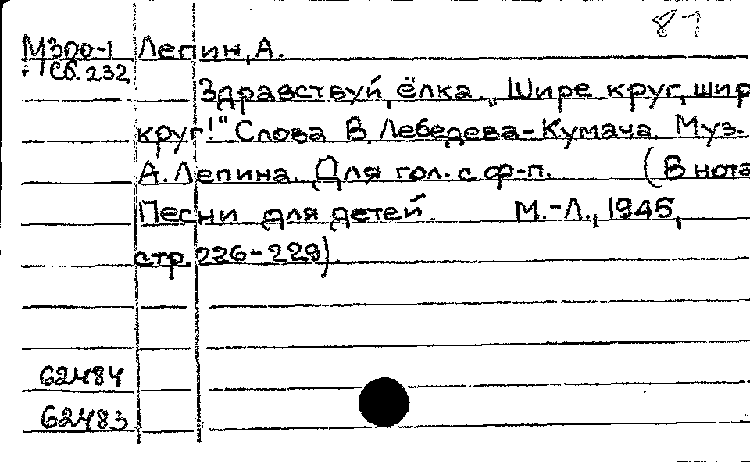 81
М3р0-1 Лепин, А.
Сб. 232
Здравствуй, ёлка. „Шире круг, шир
круг!" Слова В. Лебедева-Кумача. Муз.
А. Лепина. Для гол. с ф-п. (В нота
Песни для детей. М.-Л., 1945,
стр. 226-229).
62484
62483